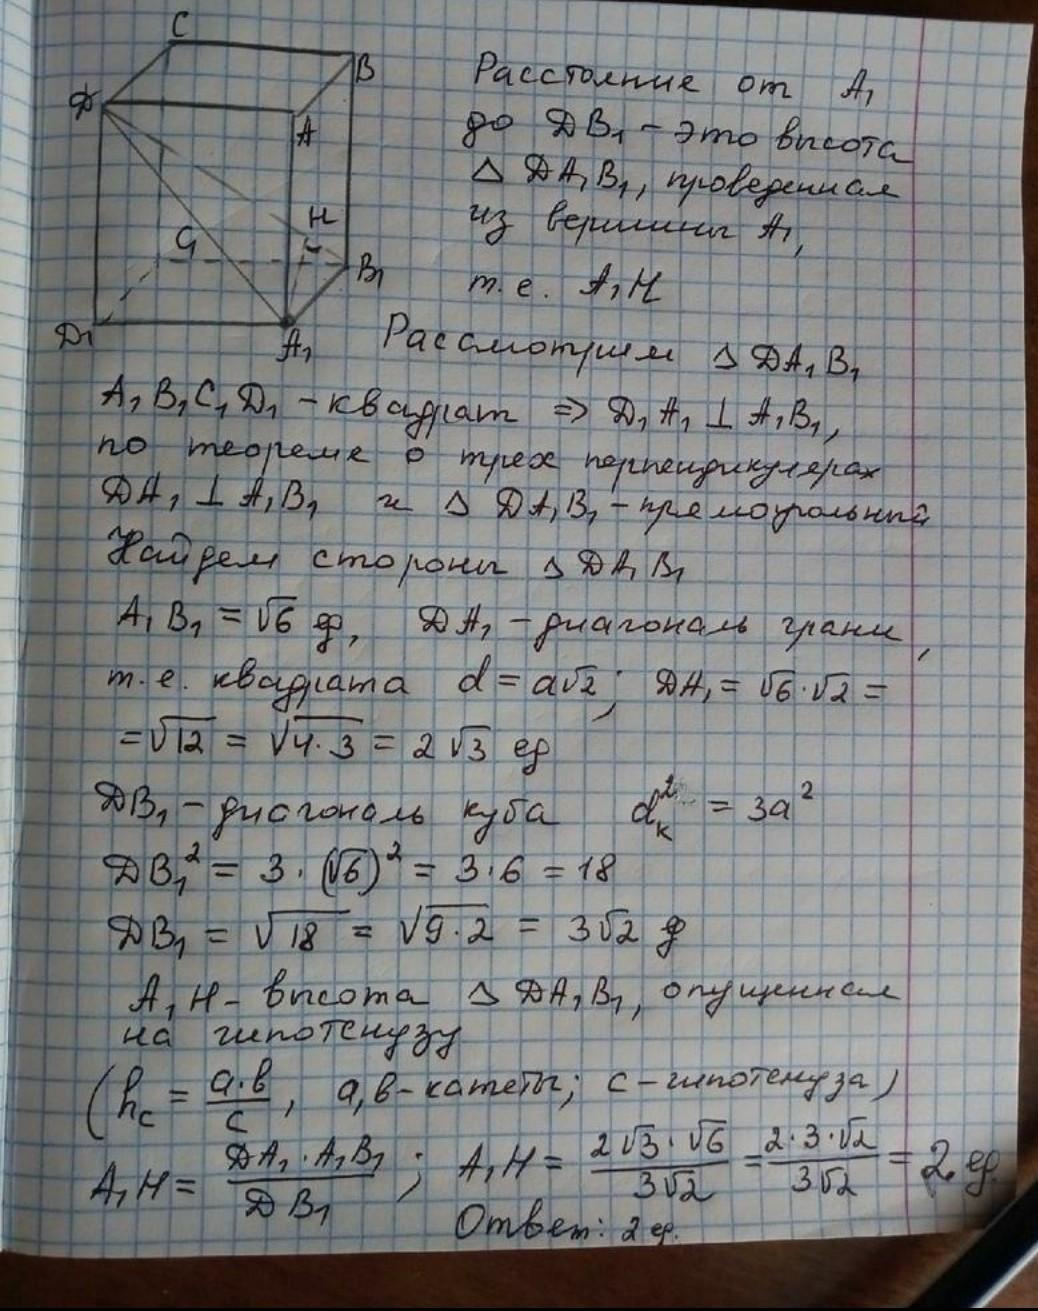 C
B
Д
A
H
C₁
B₁
Д₁
A₁
Расстояние от A₁
до ДB₁ - это высота
△ ДA₁B₁, проведенная
из вершины A₁,
т.е. A₁H
Рассмотрим △ ДA₁B₁
A₁B₁C₁Д₁ - квадрат ⇒ Д₁A₁ ⊥ A₁B₁,
по теореме о трех перпендикулярах
ДA₁ ⊥ A₁B₁ и △ ДA₁B₁ - прямоугольный
Найдем стороны △ ДA₁B₁
A₁B₁ = √6 ед, ДA₁ - диагональ грани,
т.е. квадрата d = a√2; ДA₁ = √6·√2 =
= √12 = √4·3 = 2√3 ед
ДB₁ - диагональ куба dₖ² = 3a²
ДB₁² = 3·(√6)² = 3·6 = 18
ДB₁ = √18 = √9·2 = 3√2 ед
A₁H - высота △ ДA₁B₁, опущенная
на гипотенузу
(h_c = a·b/c, a,b - катеты; c - гипотенуза)
A₁H = ДA₁·A₁B₁/ДB₁; A₁H = 2√3·√6/3√2 = 2·3·√2/3√2 = 2 ед.
Ответ: 2 ед.